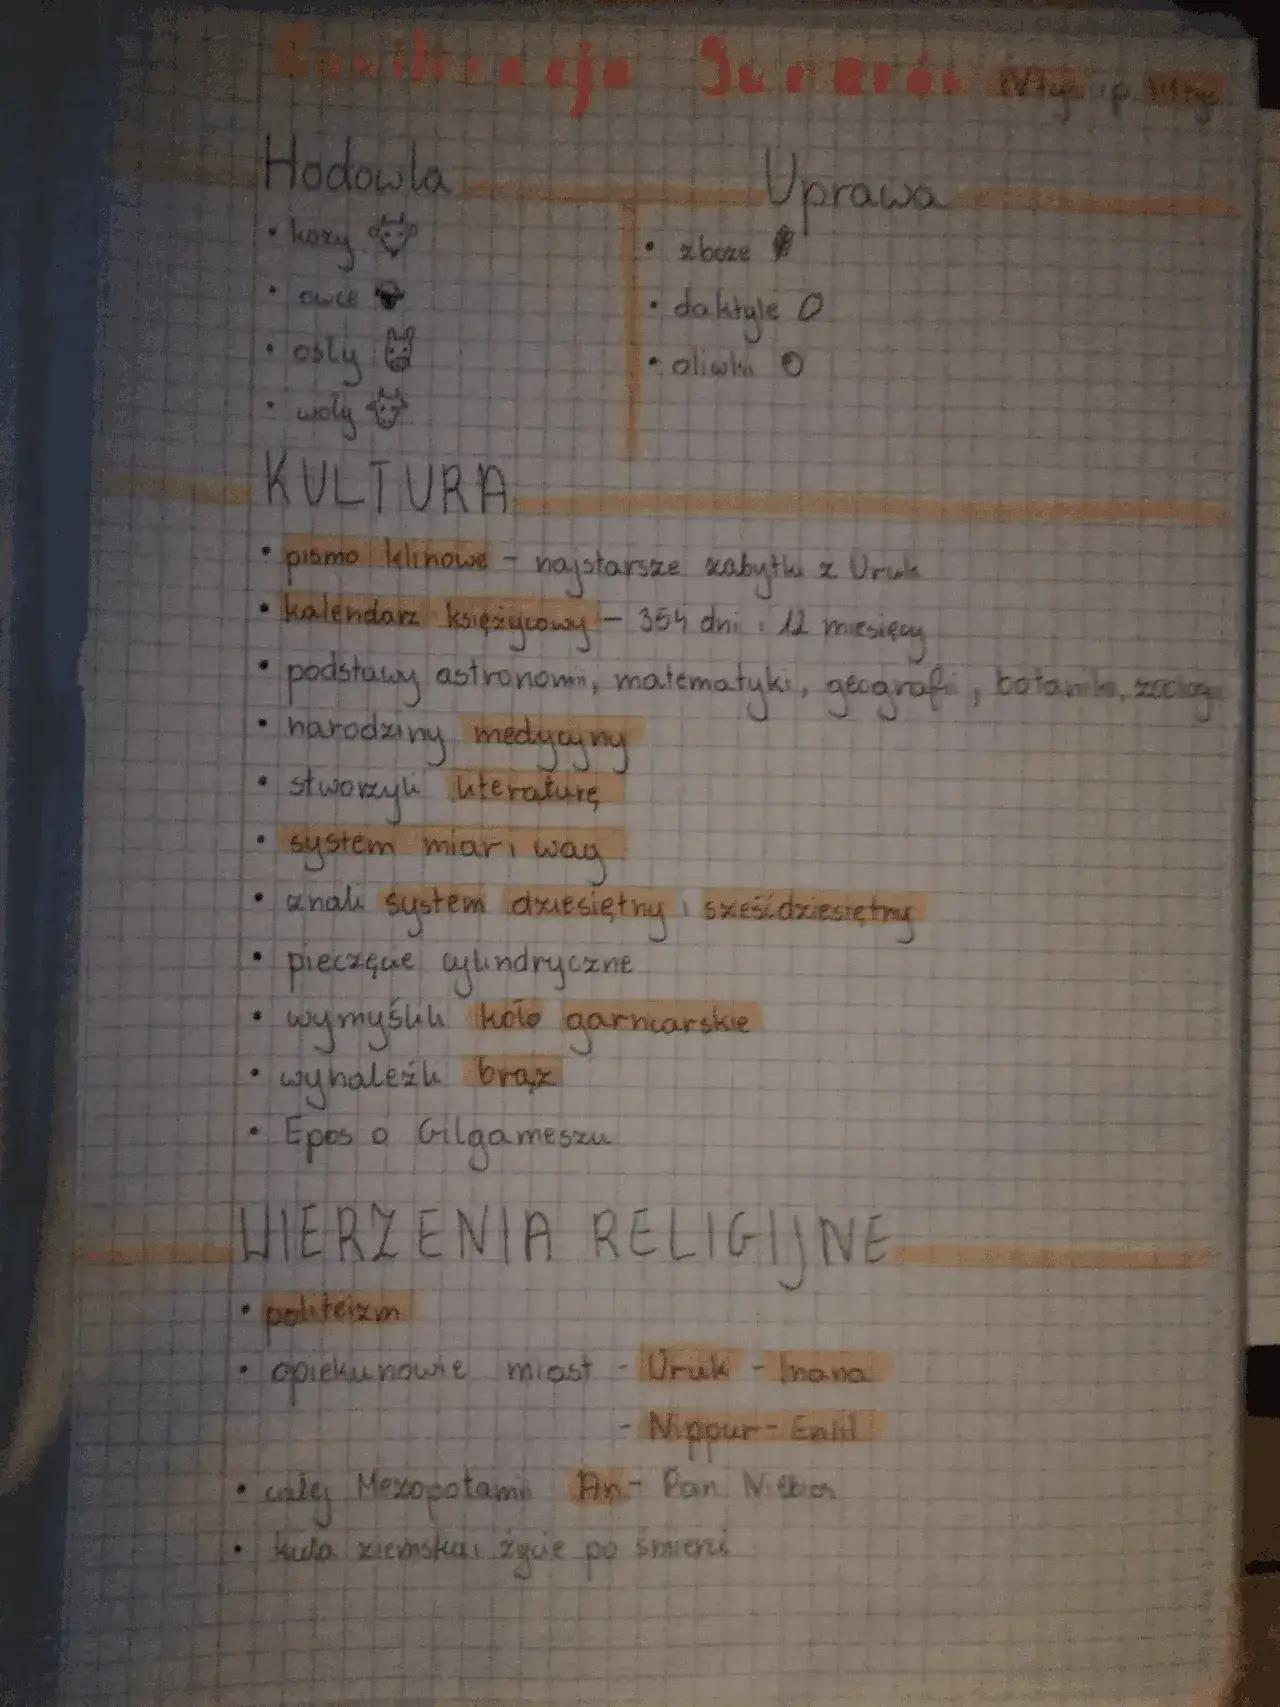 Cywilizacja Sumerów IV tyś p. III tyś
Hodowla
• kozy
• owce
• osły
• woły
Uprawa
• zboże
• daktyle
• oliwki
KULTURA
• pismo klinowe - najstarsze zabytki z Uruk
• kalendarz księżycowy - 354 dni i 12 miesięcy
• podstawy astronomii, matematyki, geografii, botaniki,
• narodziny medycyny
• stworzyli literaturę
• system miar i wag
• znali system dziesiętny i sześćdziesiętny
• pieczęcie cylindryczne
• wymyślili koło garncarskie
• wynaleźli brąz
• Epos o Gilgameszu
WIERZENIA RELIGIJNE
• politeizm
• opiekunowie miast - Uruk - Inana
- Nippur - Enlil
• całej Mezopotamii An - Pan Niebios
• kula ziemska i życie po śmierci